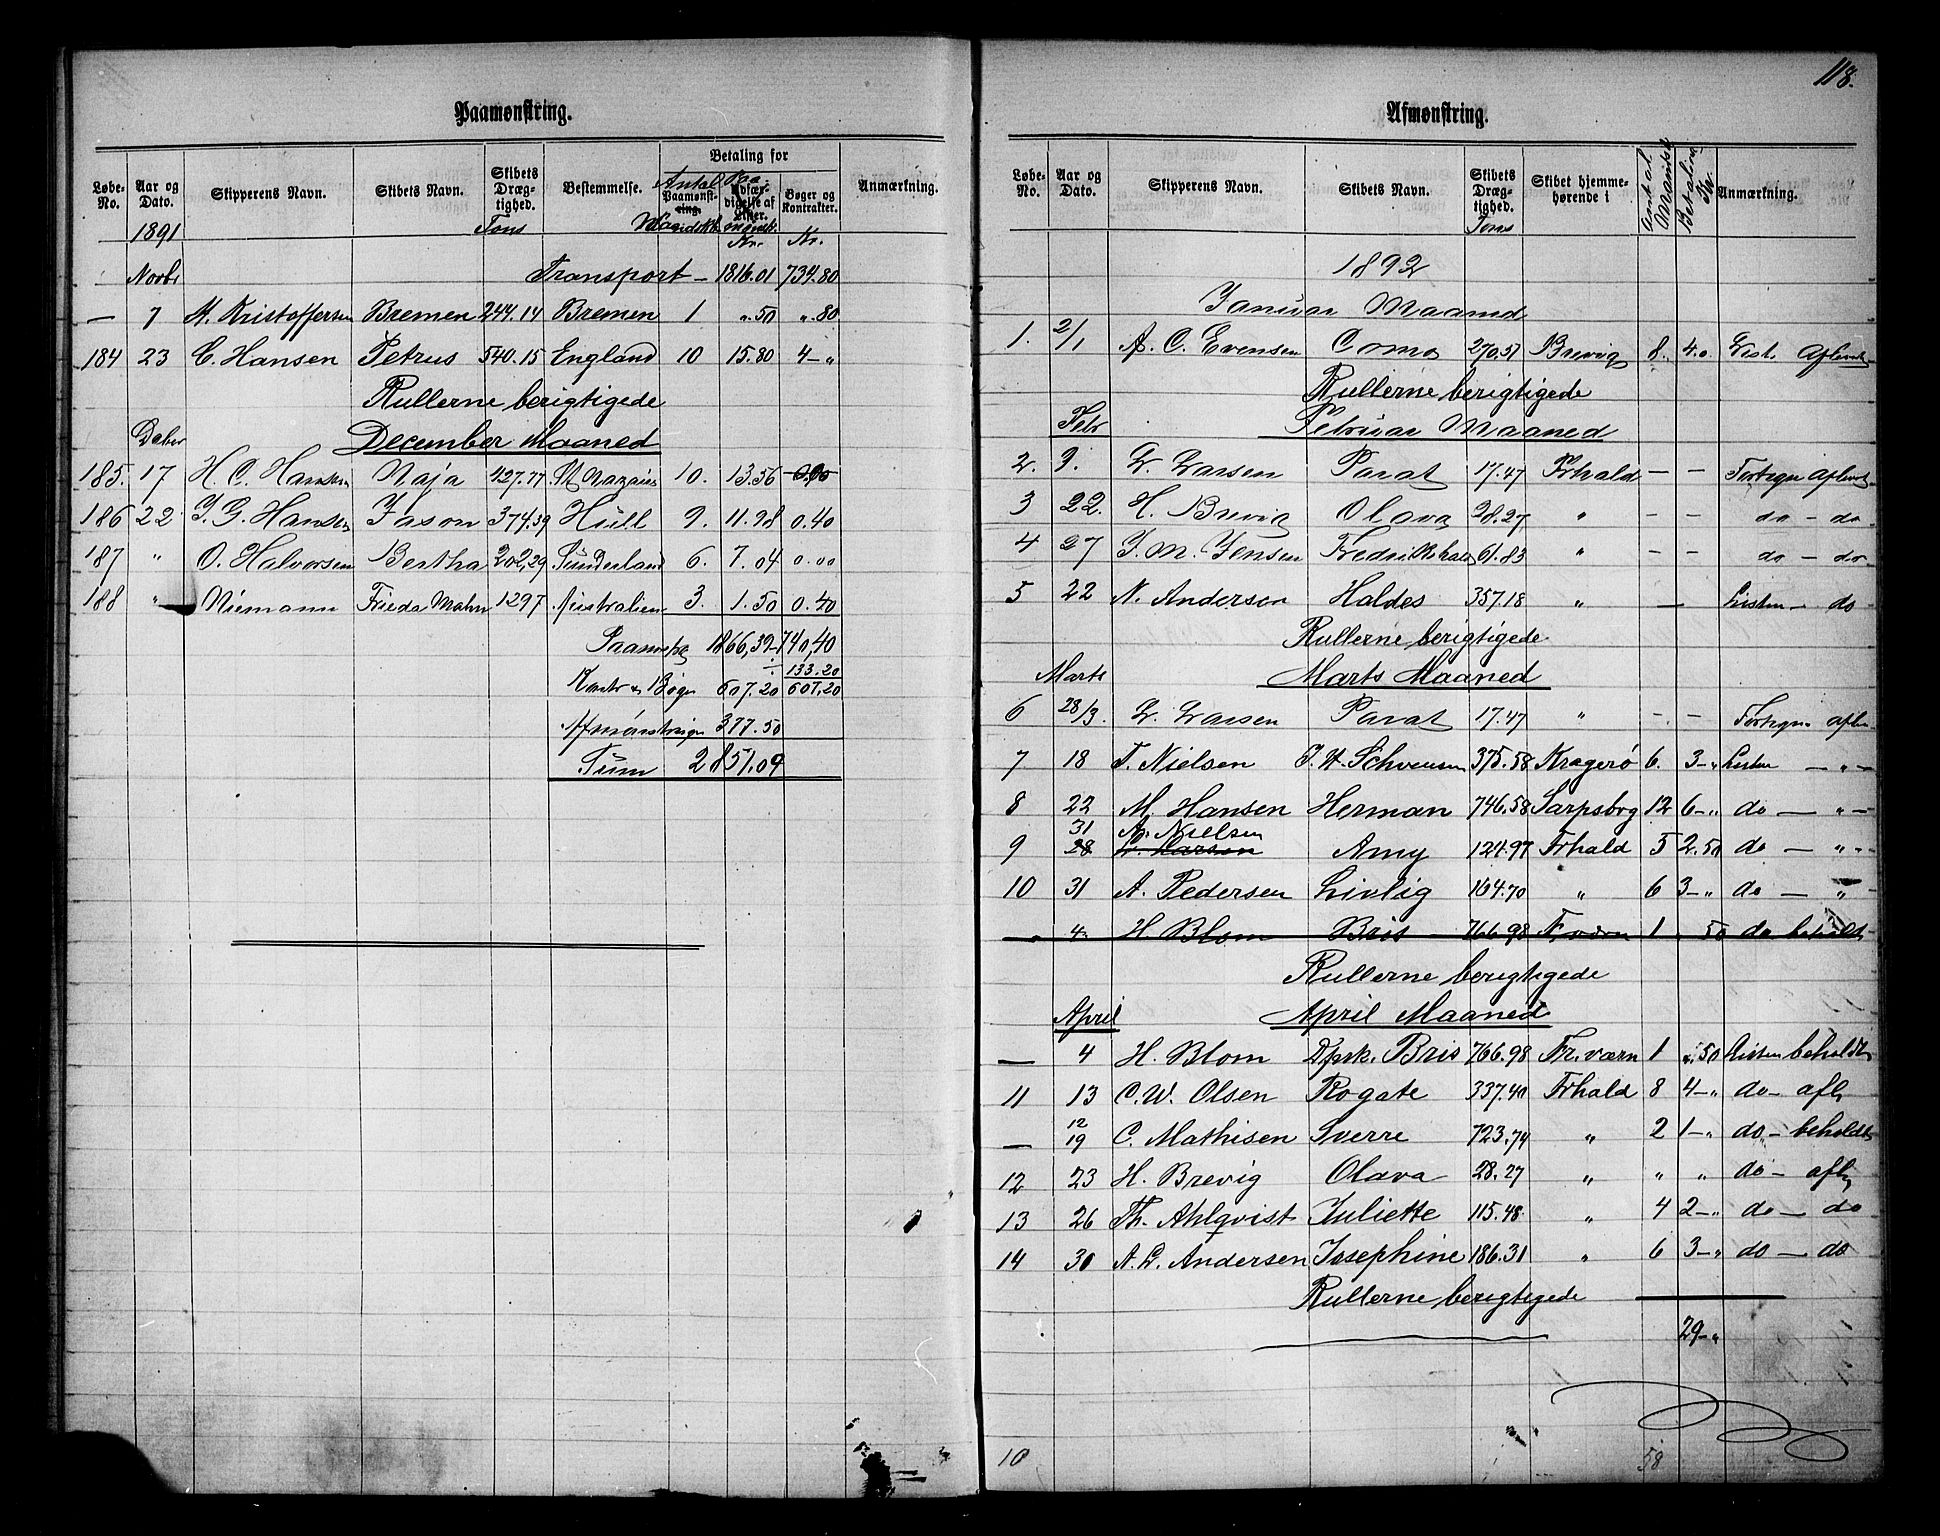 Paamønstring.
Løbe-No. Aar og Dato. Skipperens Navn. Skibets Navn. Skibets Dræg-tighed. Bestemmelse. Betaling for Anmærkning.
Antal Paamønst-ring. Mandsk. Udfær-digelse af Lister. Bøger og Kontrakter.
1891 Tons Kr. Kr.
Novbr Transport — 1816.01 734.80
— 7 M. Kristoffersen Bremen 244.14 Bremen 1 „.50 „.80
184 23 C. Hansen Petrus 540.15 England 10 15.80 4-„
Rullerne berigtigede
Decbr December Maaned
185. 17 H. C. Hansen Naja 427.77 St Nazaire 10. 13.56 0.00
186 22 J. G. Hansen Jason 374.39 Hull 9. 11.98 0.40
187 „ O. Halvorsen Bertha 202,29 Sunderland 6. 7.04 0.00
188 „ Niemann Frieda Mahn 1297 Australien 3. 1.50 0.40
Paamstg 1866,39 - 740,40
÷ 133.20
Kontr & Bøger 607.20 607,20
Afmønstringer 377.50
Sum 2851.09
118.
Afmønstring.
Løbe-No. Aar og Dato. Skipperens Navn. Skibets Navn. Skibets Dræg-tighed. Tons Skibet hjemme-hørende i Antal Mandsk. Betaling Kr. Anmærkning.
1892
Januar Maaned
1. 2/1 A. C. Evensen Como 270.57 Brevig 8. 4.0 List. Aflevet
Rullerne berigtigede
Febr Februar Maaned
2. 9. L. Larsen Parat 17.47 Frhald — — Fortegn Aflevet
3 22. H. Brevig Olava 28.27 „ — — do — do
4 27 J. M. Jensen Fredrikshald 61.83 „ — — do — do
5 22 N. Andersen Haldes 357.18 „ — Listen — do
Rullerne berigtigede
Marts Marts Maaned
6 28/3. L. Larsen Parat 17.47 „ — — Fortegn aflev
7 18 T. Nielsen J. H. Schwensen 375.58 Kragerø 6. 3-„ Listen — „ —
8 22 M. Hansen Herman 746.58 Sarpsborg 12 6-„ do — „ —
31 A. Nielsen
9 28 L. Larsen Amy 124.97 Frhald 5 2.50 do — „ —
10 31 A. Pedersen Livlig 164.70 „ 6 3-„ do — „
— 4 H. Blom Bris 766.98 Fr.værn 1 50 do beholdt
Rullerne berigtigede
April April Maaned
— 4 H. Blom Dpsk. Bris 766.98 Fr.værn 1 „.50 Listen beholdt
11 13 C. W. Olsen Rogate 337.40 Frhald 8 4-„ do- afl
— 12/19 C. Mathisen Sverre 723.74 „ 2 1-„ do- beholdt
12 23 H. Brevig Olava 28.27 „ „ „ do- afl
13 26 Th. Ahlqvist Juliette 115.48 „ 4 2-„ do — do
14 30 A. L. Andersen Josephine 186.31 „ 6 3-„ do — do
Rullerne berigtigede
29-„
10 58